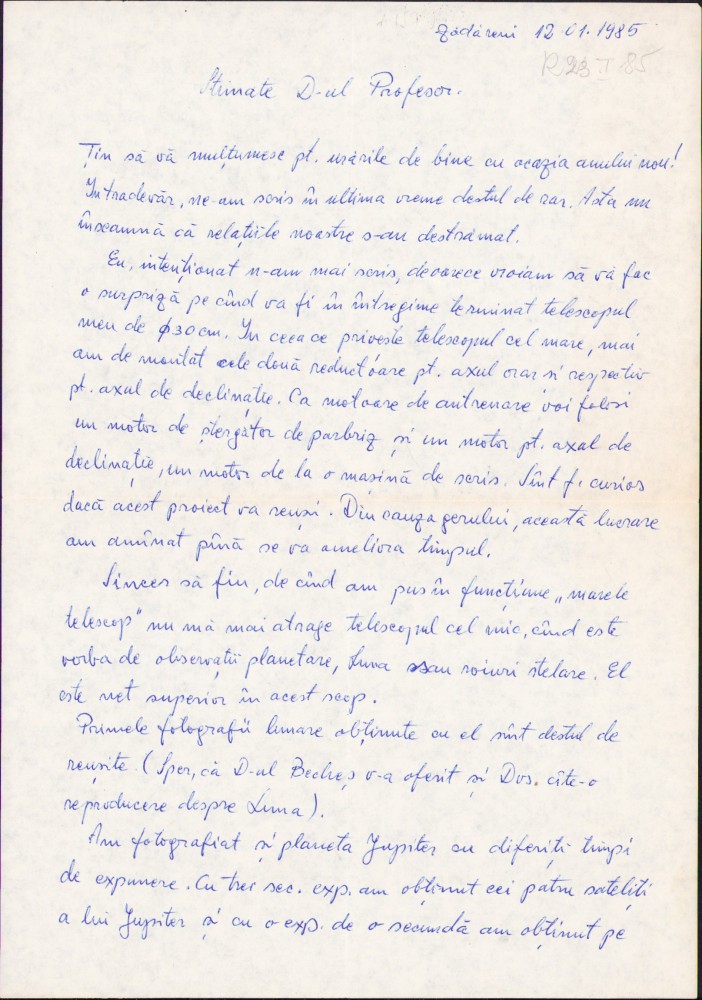 Zădăreni 12.01.1985
R 23 I 85
Stimate D-ul Profesor.
Țin să vă mulțumesc pt. urările de bine cu ocazia anului nou!
Intradevăr, ne-am scris în ultima vreme destul de rar. Asta nu
înseamnă că relațiile noastre s-au destrămat.
Eu, intenționat n-am mai scris, deoarece vroiam să vă fac
o surpriză pe cînd va fi în întregime terminat telescopul
meu de ϕ30cm. In ceea ce privește telescopul cel mare, mai
am de montat cele două reductoare pt. axul orar si respectiv
pt. axul de declinație. Ca motoare de antrenare voi folosi
un motor de ștergător de parbriz și un motor pt. axul de
declinație, un motor de la o mașină de scris. Sînt f. curios
dacă acest proiect va reuși. Din cauza gerului, această lucrare
am amînat pînă se va ameliora timpul.
Sincer să fiu, de cînd am pus în funcțiune „marele
telescop" nu mă mai atrage telescopul cel mic, cînd este
vorba de observații planetare, Luna sau roiuri stelare. El
este net superior în acest scop.
Primele fotografii lunare obținute cu el sînt destul de
reușite. (Sper, că D-ul Becheș v-a oferit și Dvs. cîte-o
reproducere despre Luna).
Am fotografiat și planeta Jupiter cu diferiți timpi
de expunere. Cu trei sec. exp. am obținut cei patru sateliți
a lui Jupiter și cu o exp. de o secundă am obținut pe